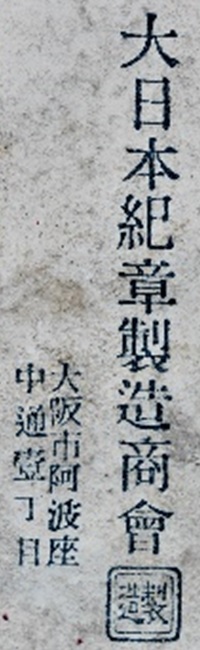 大日本紀章製造商會
製造
大阪市阿波座
中通壹丁目